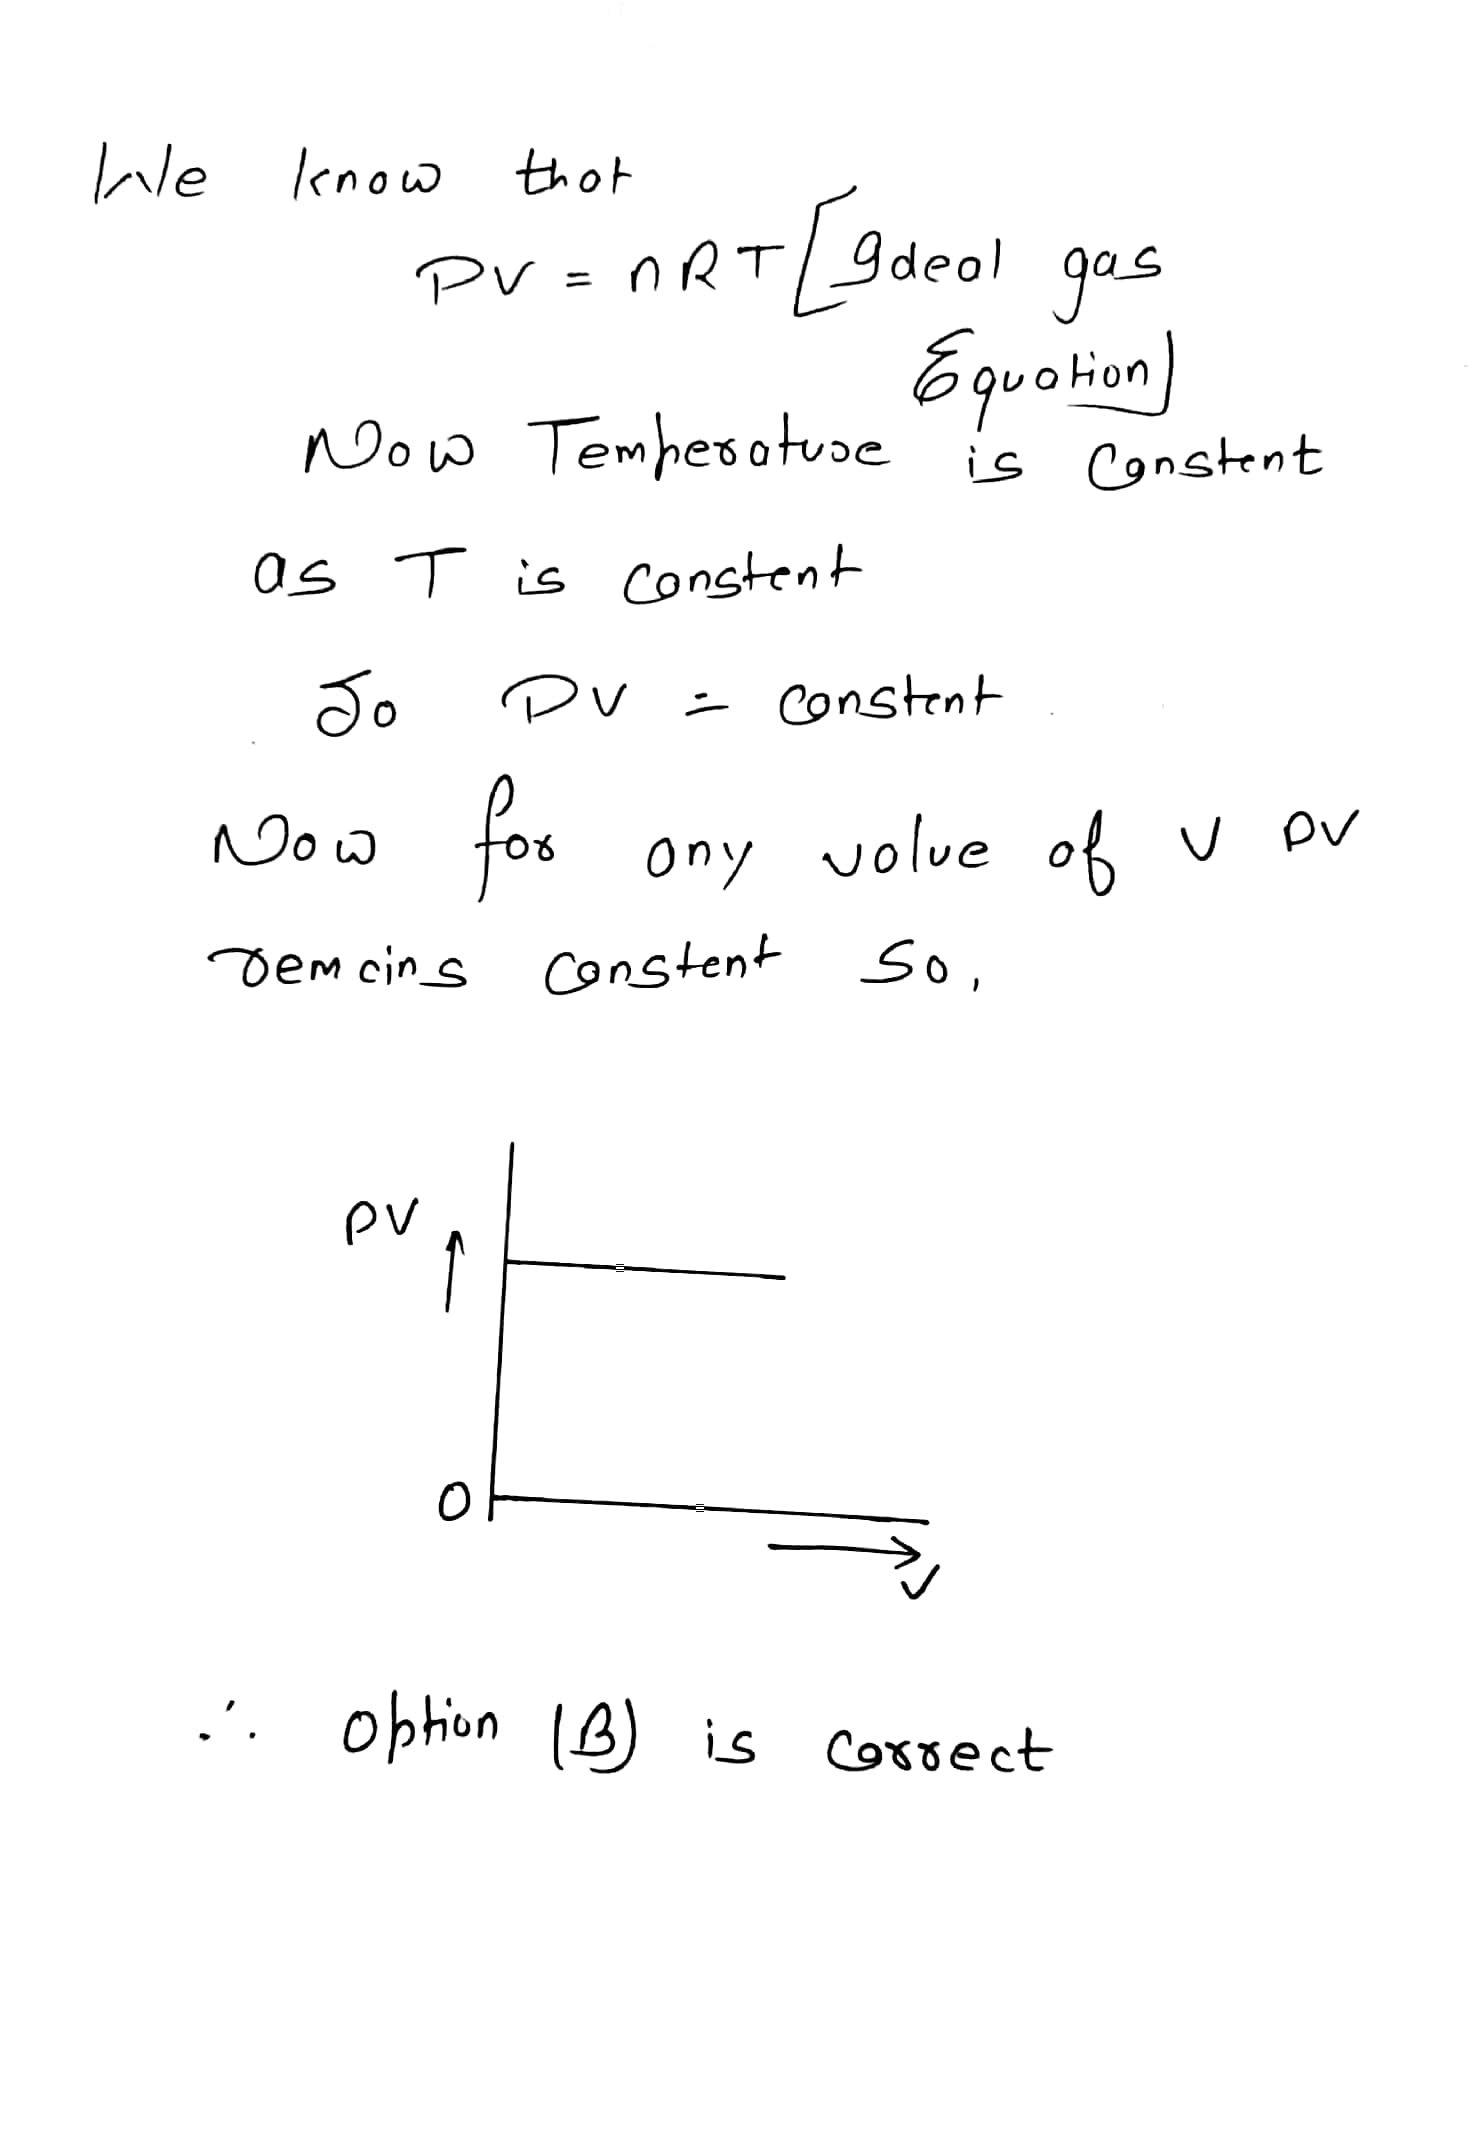 We know that
PV = nRT [Ideal gas
Equation]
Now Temperature is Constent
as T is constent
So PV = constent
Now for any value of V PV
remains constent so,
PV
O
V
∴ option (B) is correct